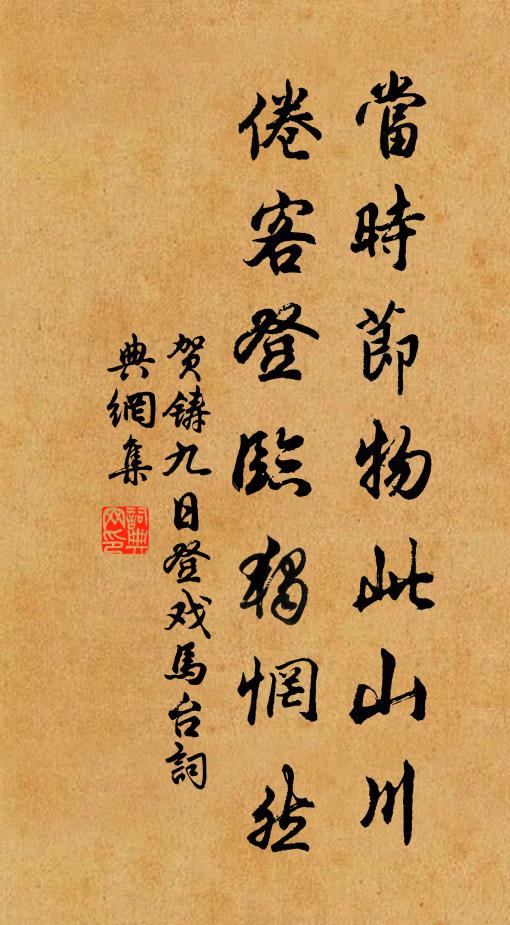 當時節物此山川
倦客登臨獨惘然
賀鑄九日登戏馬台詞
典網集
詞典網印